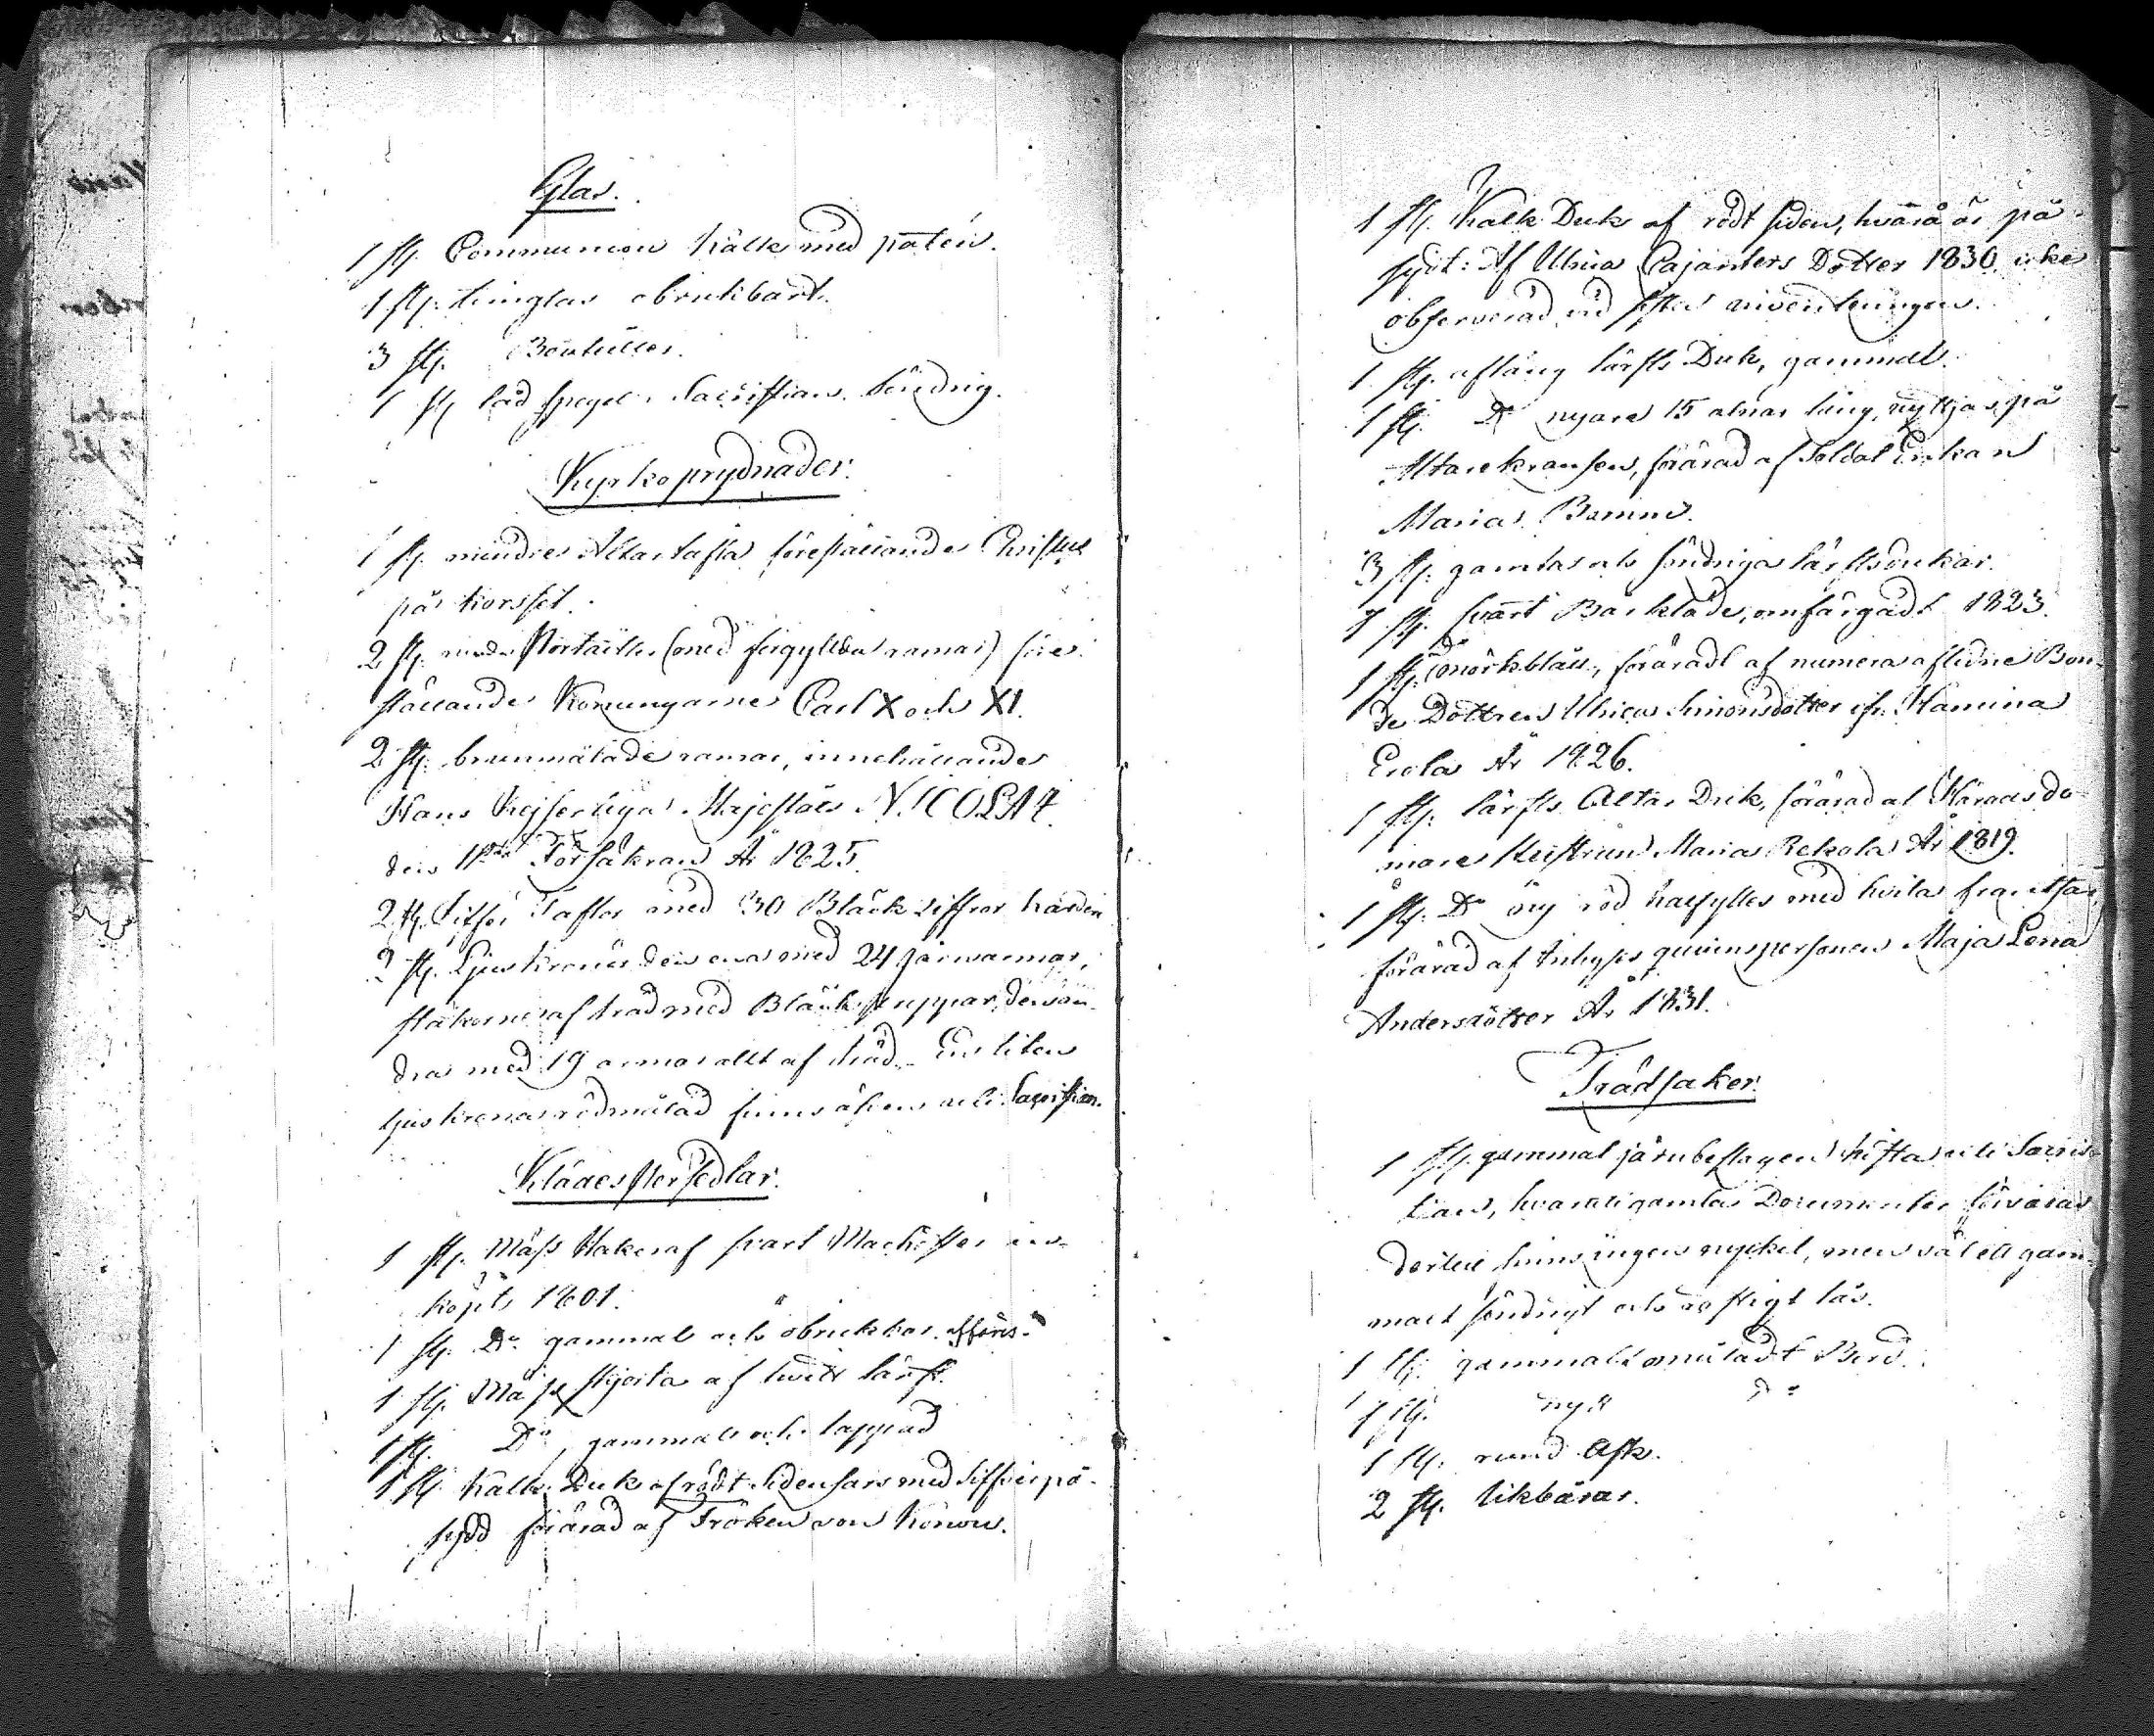 Glas.
1 st. Communion kalk med paten.
1 st. timglas obrukbart.
3 st. Bouteiller.
1 st låd spegel i Sacristian. söndrig.
Kyrkoprydnader.
1 st. mindre Altartafla föreställande Christus
på korsset.
2 st. Portraiter (med förgyllda ramar) före-
ställande Konungarne Carl X och XI.
2 st. brunmålade ramar, innehållande
Hans Kejserliga Majestäts NICOLAI
den 1sta Försäkran År 1825.
2 st. Siffer Taflor med 30 Bläck siffror hvardera
2 st. Ljuskronor den ena med 24 järnarmar,
stakarne af träd med Bläck pippar, den an-
dra med 19 armar allt af träd. En liten
ljuskrona rödmålad finns äfven uti Sacristian.
Klädespersedlar.
1 st. Mäss Hake af svart Machester in-
köpt 1801.
1 st. Do gammal och obrukbar.
1 st. Mäss skjorta af hvitt lärft.
1 st. Do, gammal och lappad
1 st. Kalk Duk af rödt Siden sars med Siffror på-
sydd förärad af Fröken von Konow.
1 st. Kalk Duk af rödt siden, hvarå är på-
sydt: Af Ulrica Cajanders Dotter 1830. icke
observerad vid sista inventeringen.
1 st. aflång lärfts Duk, gammal.
1 st. Do nyare 15 alnar lång, nyttjas på
Altarekransen, förärad af Soldat Enkan
Maria Bamm.
3 st. gamla och söndriga lärftsdukar.
1 st. svart Bårkläde, omfärgadt 1823.
1 st. Do mörkblått, föräradt af numera aflidne Bon-
de Dottren Ulrica Simonsdotter ifr. Hamina
Erola År 1826.
1 st. lärfts Altar Duk, förärad af Häradsdo-
mare Hustrun Maria Rekola År 1819.
1 st. Do ny röd halfylles med hvita fransar,
förärad af Inhyses qvinspersonen Maja Lena
Andersdotter År 1831.
Trädsaker.
1 st. gammal järnbeslagen kista uti Sacris-
tian, hvaruti gamla Documenter förvaras
dertill finns ingen nyckel, men väl ett gam-
malt söndrigt och rostigt lås.
1 st. gammalt omåladt Bord.
1 st. nytt Do
1 st. rund Ask.
2 st. likbårar.